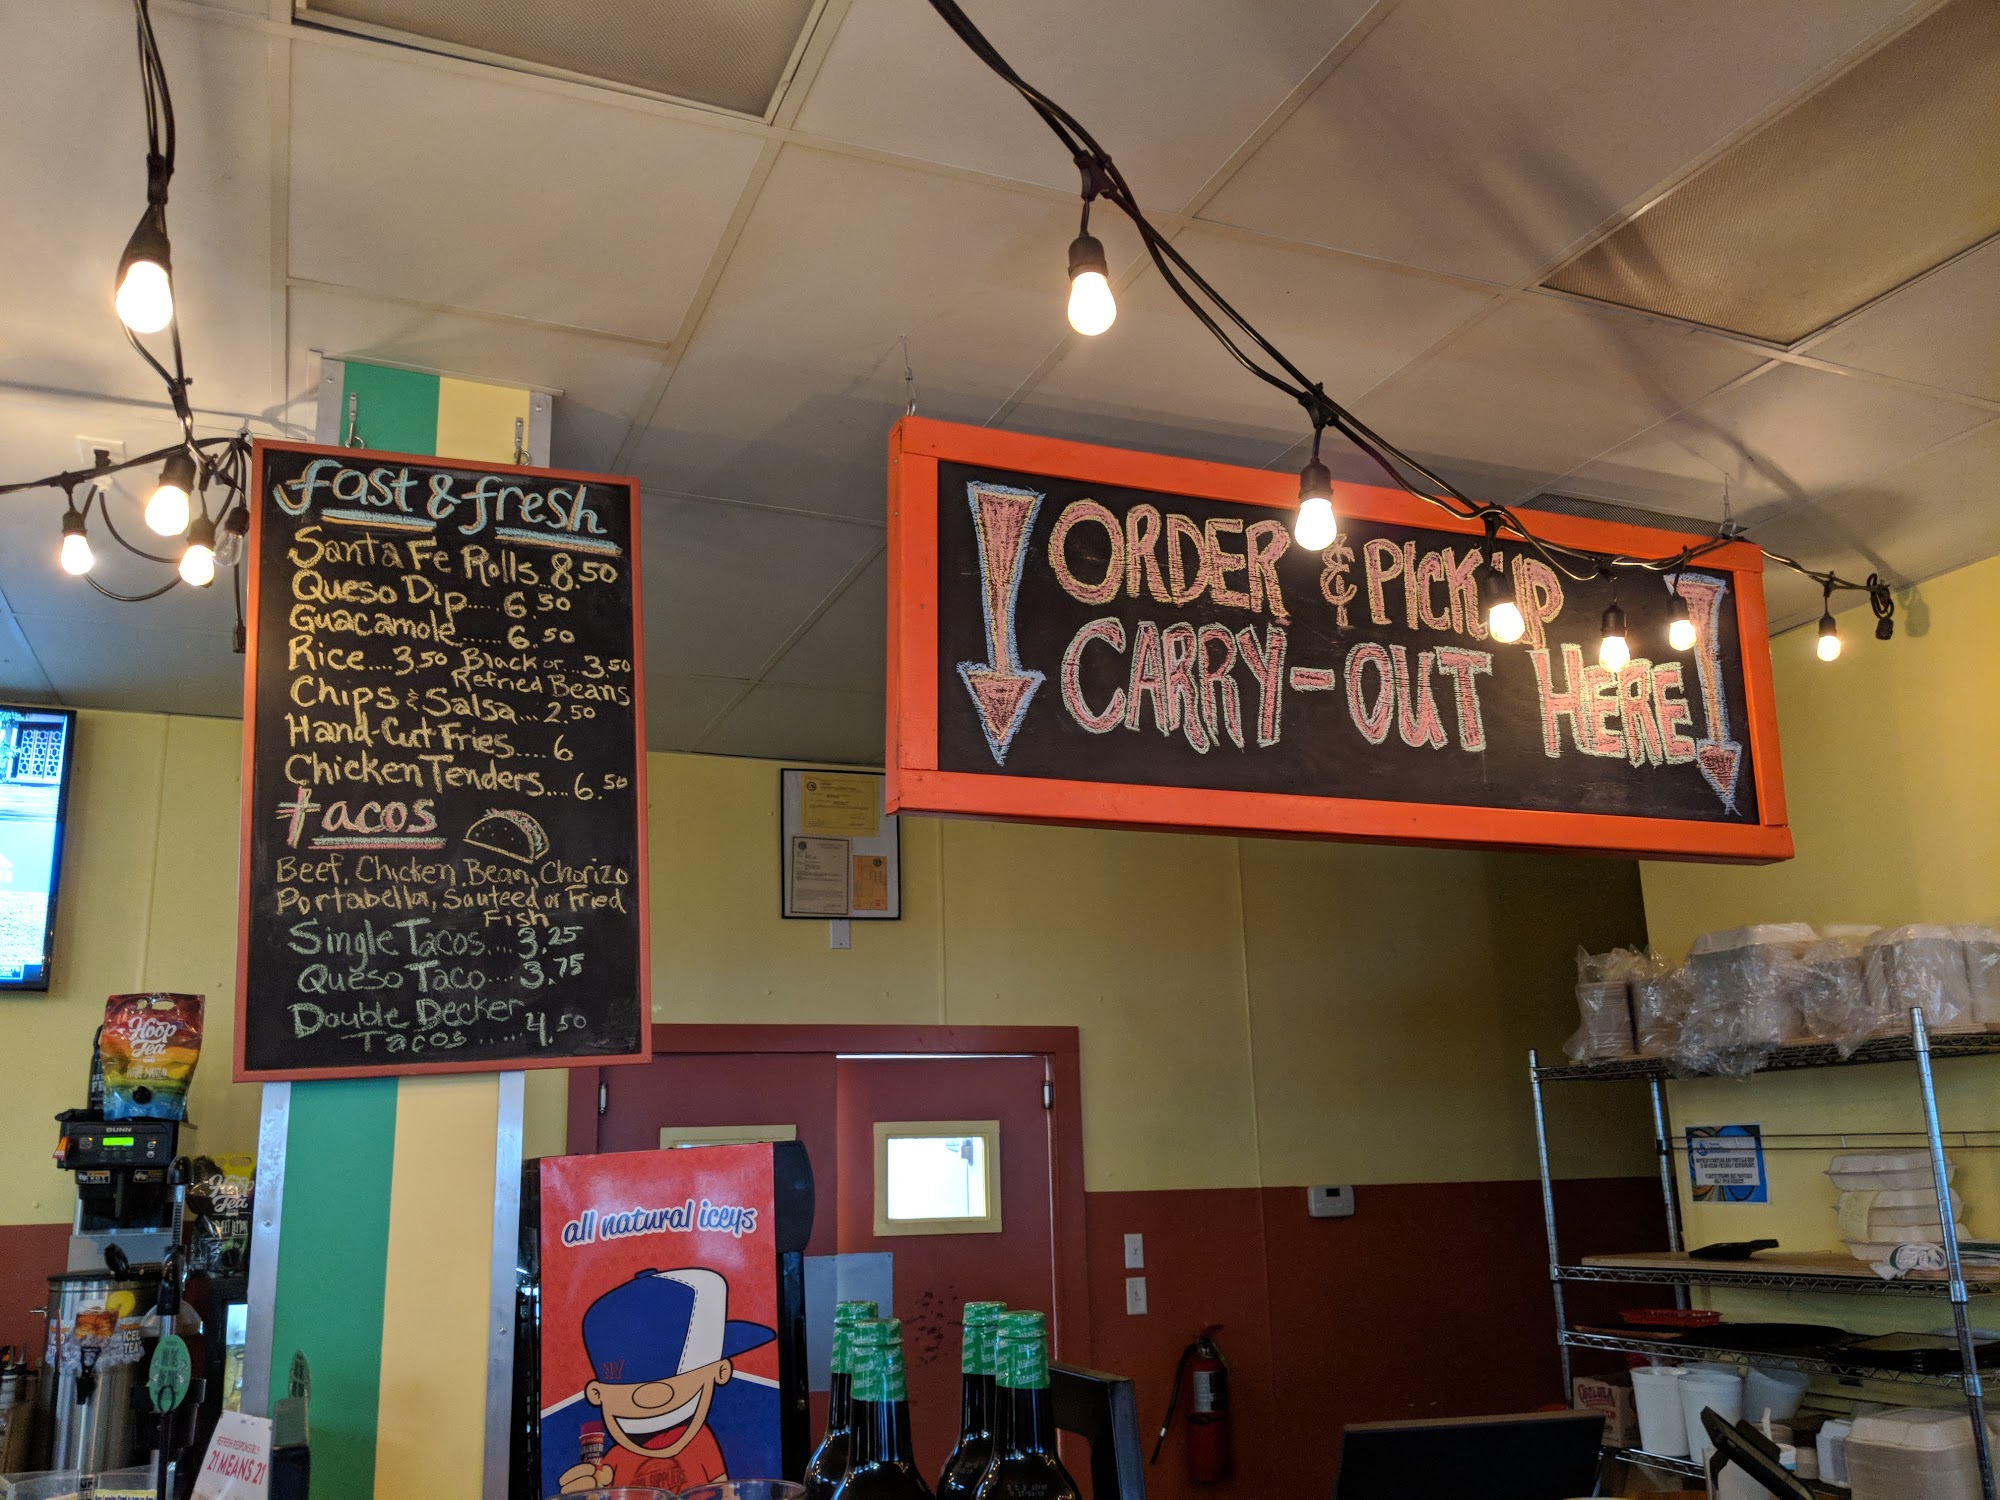 fast & fresh
Santa Fe Rolls..8.50
Queso Dip.....6.50
Guacamole......6.50
Rice....3.50 Black or...3.50
Refried Beans
Chips & Salsa...2.50
Hand-Cut Fries....6
Chicken Tenders....6.50
tacos
Beef, Chicken, Bean, Chorizo
Portabella, Sauteed or Fried
Fish
Single Tacos....3.25
Queso Taco....3.75
Double Decker
Tacos.....4.50
ORDER & PICK UP
CARRY-OUT HERE
Hoop
Tea
BUNN
Hoop
Tea
all natural iceys
NY
ICED
TEA
21 MEANS 21
CHOLULA